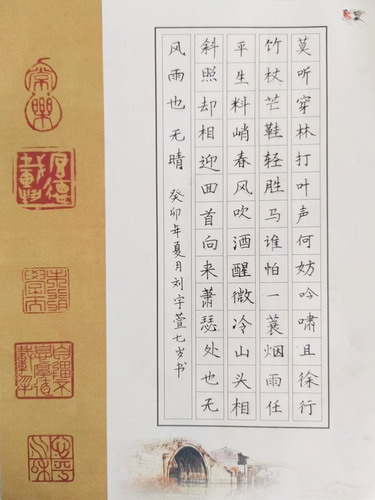 莫听穿林打叶声何妨吟啸且徐行
竹杖芒鞋轻胜马谁怕一蓑烟雨任
平生料峭春风吹酒醒微冷山头相
斜照却相迎回首向来萧瑟处也无
风雨也无晴 癸卯年夏月刘宇萱七岁书
常樂
厚德載物